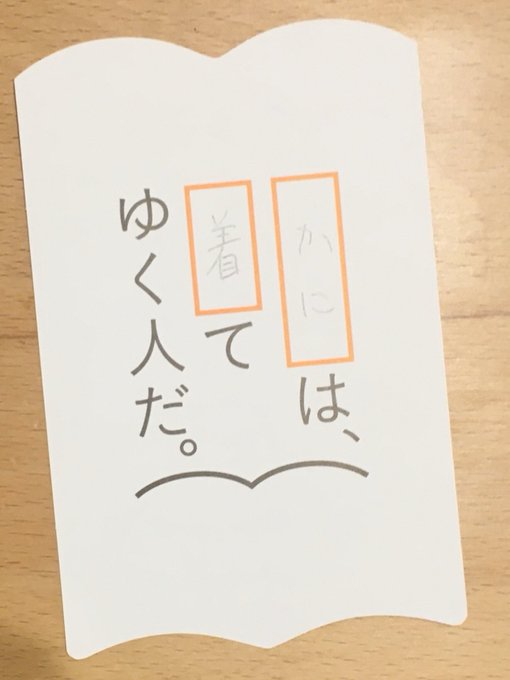 かには、
着て
ゆく人だ。